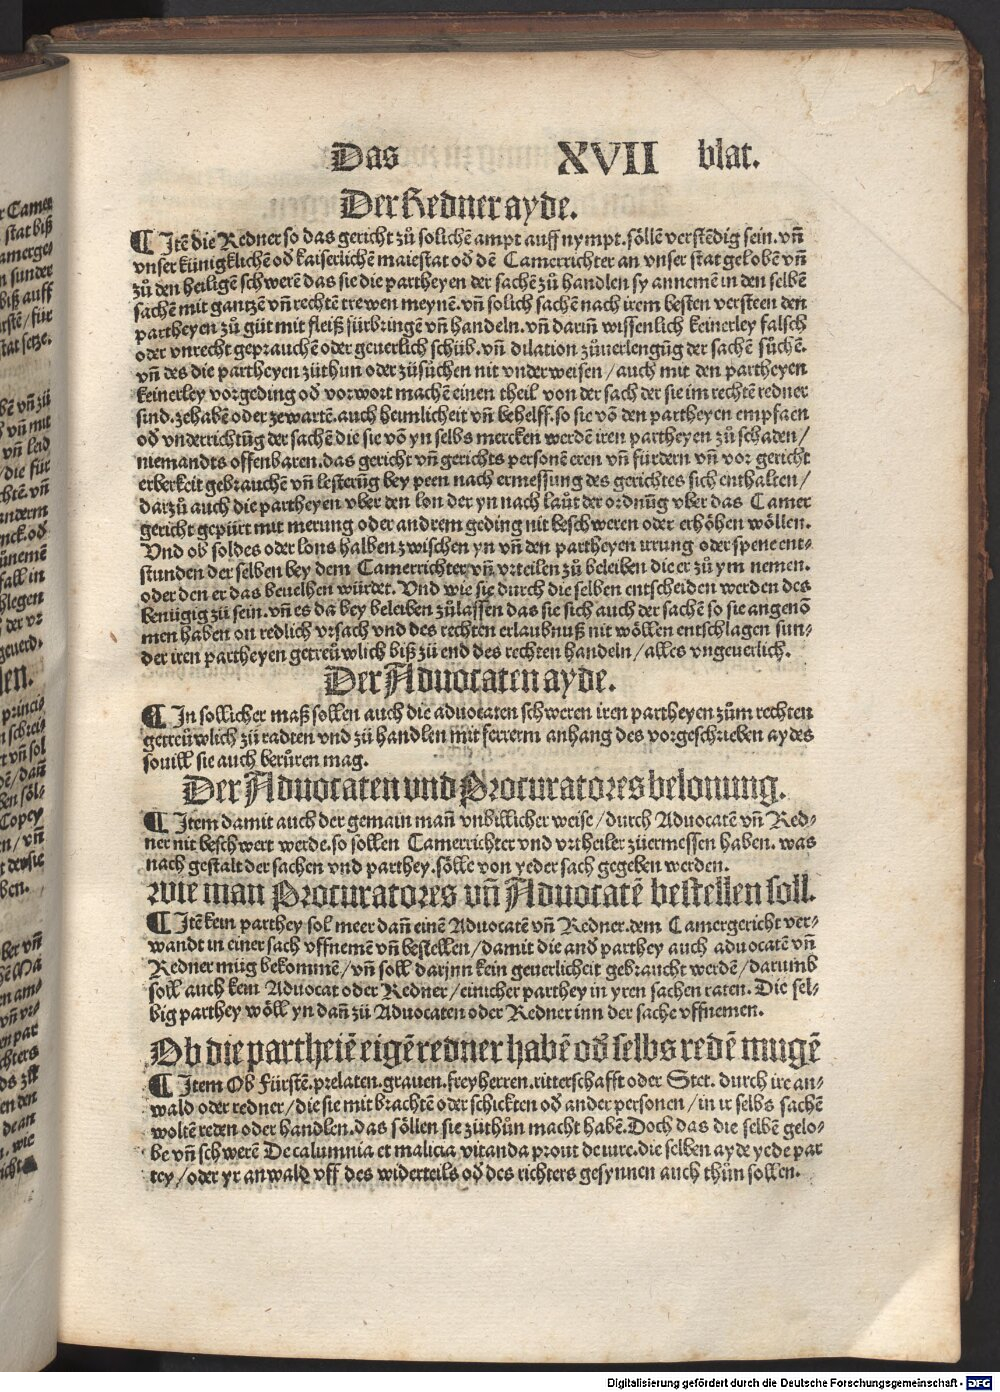 Das XVII blat.
Der Redner ayde.
¶ Jtē die Redner so das gericht zů solichē ampt auff nympt. söllē verstēdig sein. vn̄
vnser künigklichē od̄ kaiserlichē maiestat od̄ dē Camerrichter an vnser stat gelobē vn̄
zů den heiligē schwerē das sie die partheyen der sachē zů handlen sy annemē in den selbē
sachē mit gantzē vn̄ rechtē trewen meynē. vn̄ solich sachē nach irem besten versteen den
partheyen zů gůt mit fleiß fürbringē vn̄ handeln. vn̄ darin̄ wissenlich keinerley falsch
oder vnrecht geprauchē oder geuerlich schüb. vn̄ dilation zůuerlengūg der sachē sůchē.
vn̄ des die partheyen zůthun oder zůsůchen nit vnderweisen / auch mit den partheyen
keinerley vorgeding od̄ vorwort machē einen theil von der sach der sie im rechtē redner
sind. zehabē oder zewartē. auch heimlicheit vn̄ behelff. so sie vō den partheyen empfaen
od̄ vnderrichtūg der sachē die sie vō yn selbs mercken werdē iren partheyen zů schaden /
niemandts offenbaren. das gericht vn̄ gerichts personē eren vn̄ fürdern vn̄ vor gericht
erberkeit gebrauchē vn̄ lesterūg bey peen nach ermessung des gerichtes sich enthalten /
darzů auch die partheyen vber den lon der yn nach laůt der ordnūg vber das Camer
gericht gepürt mit merung oder andrem geding nit beschweren oder erhöhen wöllen.
Vnd ob soldes oder lons halben zwischen yn vn̄ den partheyen irrung oder spene ent⸗
stunden der selben bey dem Camerrichter vn̄ vrteilen zů beleiben die er zů ym nemen.
oder den er das beuelhen würdet. Vnd wie sie durch die selben entscheiden werden des
benügig zů sein. vn̄ es da bey beleiben zůlassen das sie sich auch der sachē so sie angenō
men haben on redlich vrsach vnd des rechten erlaubnuß nit wöllen entschlagen sun⸗
der iren partheyen getreüwlich biß zů end des rechten handeln / alles vngeuerlich.
Der Aduocaten ayde.
¶ Jn sollicher maß sollen auch die aduocaten schweren iren partheyen zům rechten
getreüwlich zů radten vnd zů handlen mit ferrerm anhang des vorgeschrieben aydes
souill sie auch berůren mag.
Der Aduocaten vnd Procuratores belonung.
¶ Jtem damit auch der gemain man̄ vnbillicher weise / durch Aduocatē vn̄ Red⸗
ner nit beschwert werde. so sollen Camerrichter vnd vrtheiler zůermessen haben. was
nach gestalt der sachen vnd parthey. sölle von yeder sach gegeben werden.
wie man Procuratores vn̄ Aduocatē bestellen soll.
¶ Jtē kein parthey sol meer dan̄ einē Aduocatē vn̄ Redner. dem Camergericht ver⸗
wandt in einer sach vffnemē vn̄ bestellen / damit die and̄ parthey auch aduocatē vn̄
Redner müg bekommē / vn̄ soll darjnn kein geuerlicheit gebraucht werdē / darumb
soll auch kein Aduocat oder Redner / einicher parthey in yren sachen raten. Die sel⸗
big parthey wöll yn dan̄ zů Aduocaten oder Redner inn der sache vffnemen.
Ob die partheiē eigē redner habē od̄ selbs redē mugē
¶ Jtem Ob Fürstē. prelaten. grauen. freyherren. ritterschafft oder Stet. durch ire an⸗
wald oder redner / die sie mit brachtē oder schickten od̄ ander personen / in ir selbs sachē
woltē reden oder handlen. das söllen sie zůthůn macht habē. Doch das die selbē gelo⸗
be vn̄ schwerē De calumnia et malicia vitanda prout de iure. die selben ayde yede par
tey / oder yr anwald vff des widerteils od̄ des richters gesynnen auch thůn sollen.
Digitalisierung gefördert durch die Deutsche Forschungsgemeinschaft - DFG